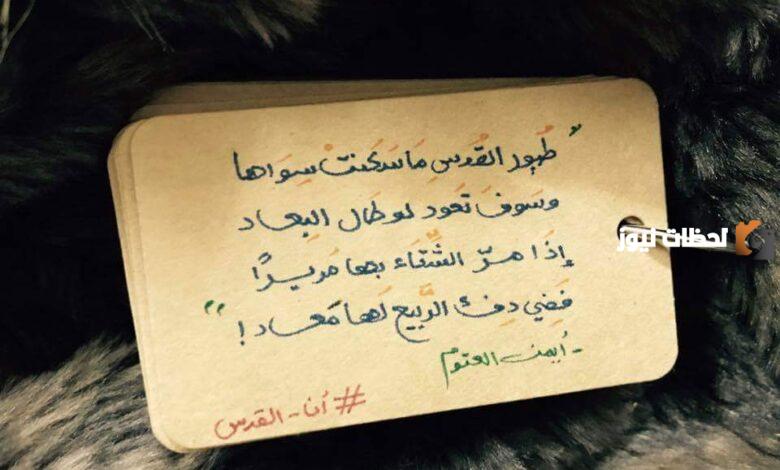 " طُيور القُدسِ مَا سَكَنتْ سِوَاها
وسَوفَ تَعود لو طَال البِعاد
إذَا مرّ الشِّتَاء بها مَريرًا
فَفي دِفء الرَّبيع لَها مَعاد ! "
- أيمن العتوم
#أنا-القدس
لحظات نيوز